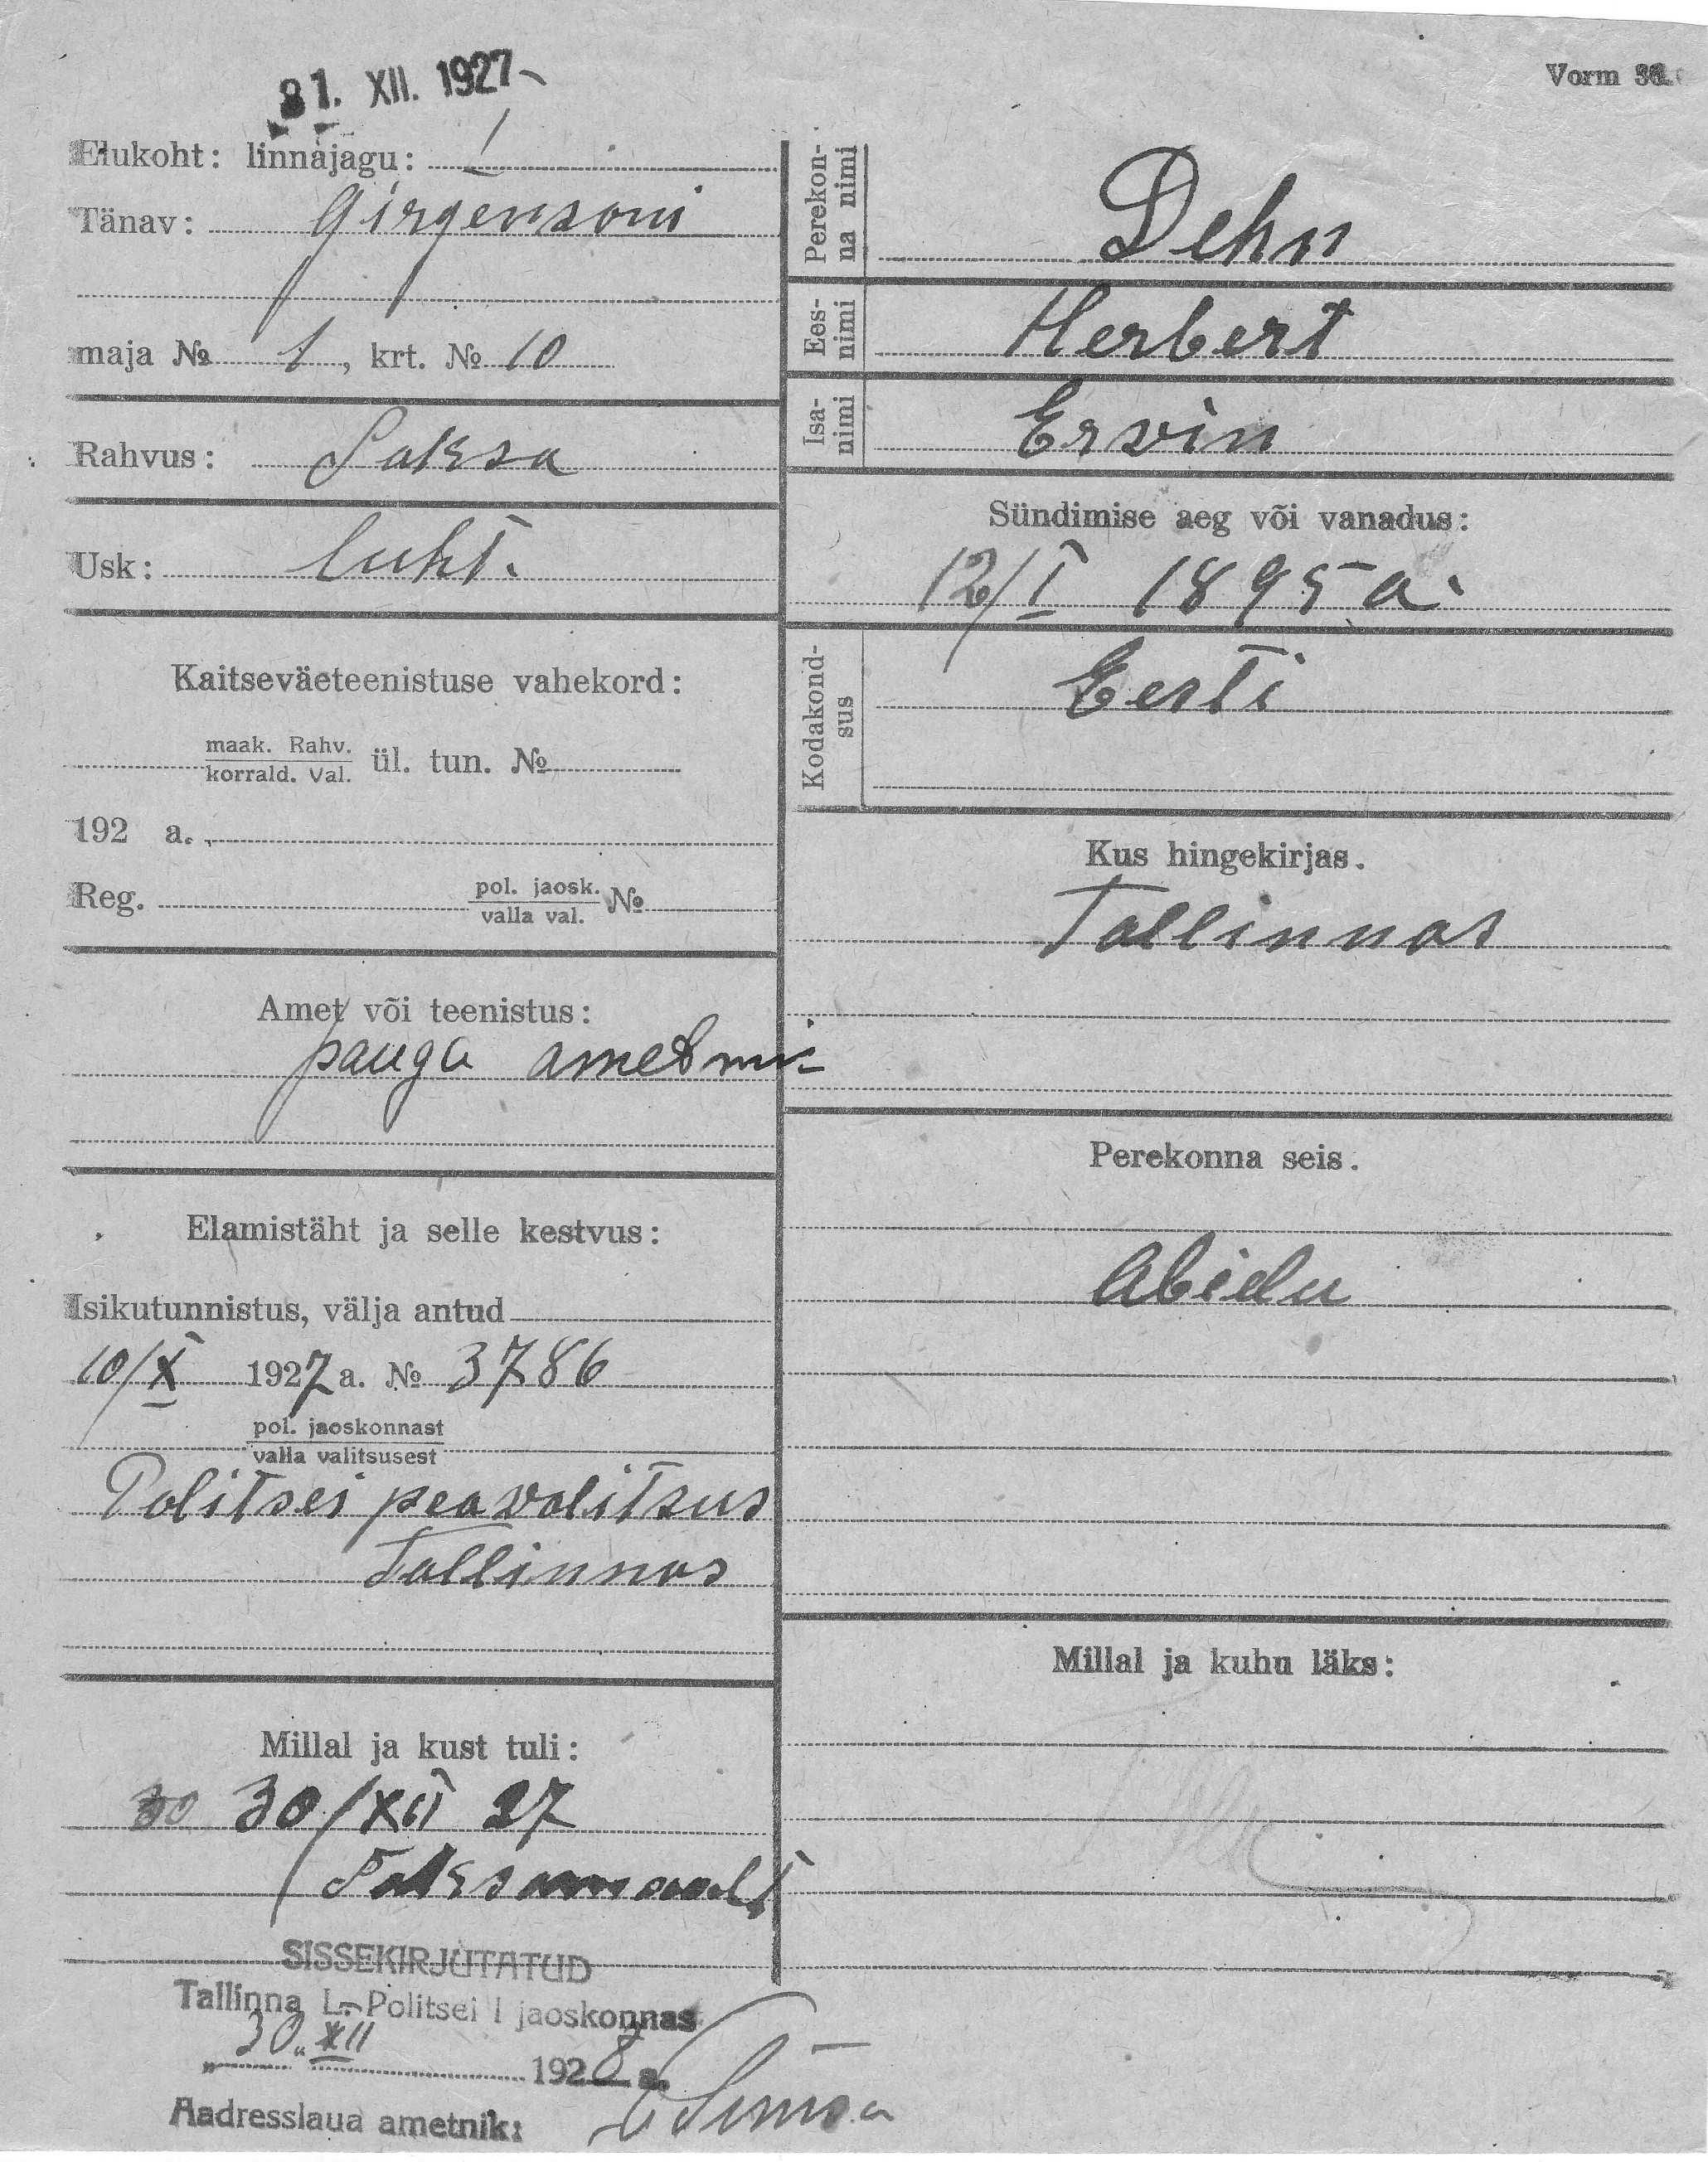 31. XII. 1927
Vorm
Elukoht: linnajagu: I
Tänav: Girgensoni
maja № 1, krt. № 10
Rahvus: Saksa
Usk: luht.
Kaitseväeteenistuse vahekord:
maak. Rahv.
korrald. Val. ül. tun. №
192 a.
Reg. pol. jaosk. №
valla val.
Amet või teenistus:
panga ametnik
Elamistäht ja selle kestvus:
Isikutunnistus, välja antud
10/X 1927 a. № 3786
pol. jaoskonnast
valla valitsusest
Politsei peavalitsus
Tallinnas
Millal ja kust tuli:
30 30/XII 27
Saksamaalt
SISSEKIRJUTATUD
Tallinna L. Politsei I jaoskonnas
"30" XII 1928 a.
Aadresslaua ametnik:
Perekon-
na nimi
Dehn
Ees-
nimi
Herbert
Isa-
nimi
Ervin
Sündimise aeg või vanadus:
12/I 1895 a.
Kodakond-
sus
Eesti
Kus hingekirjas.
Tallinnas
Perekonna seis.
Abielu
Millal ja kuhu läks: